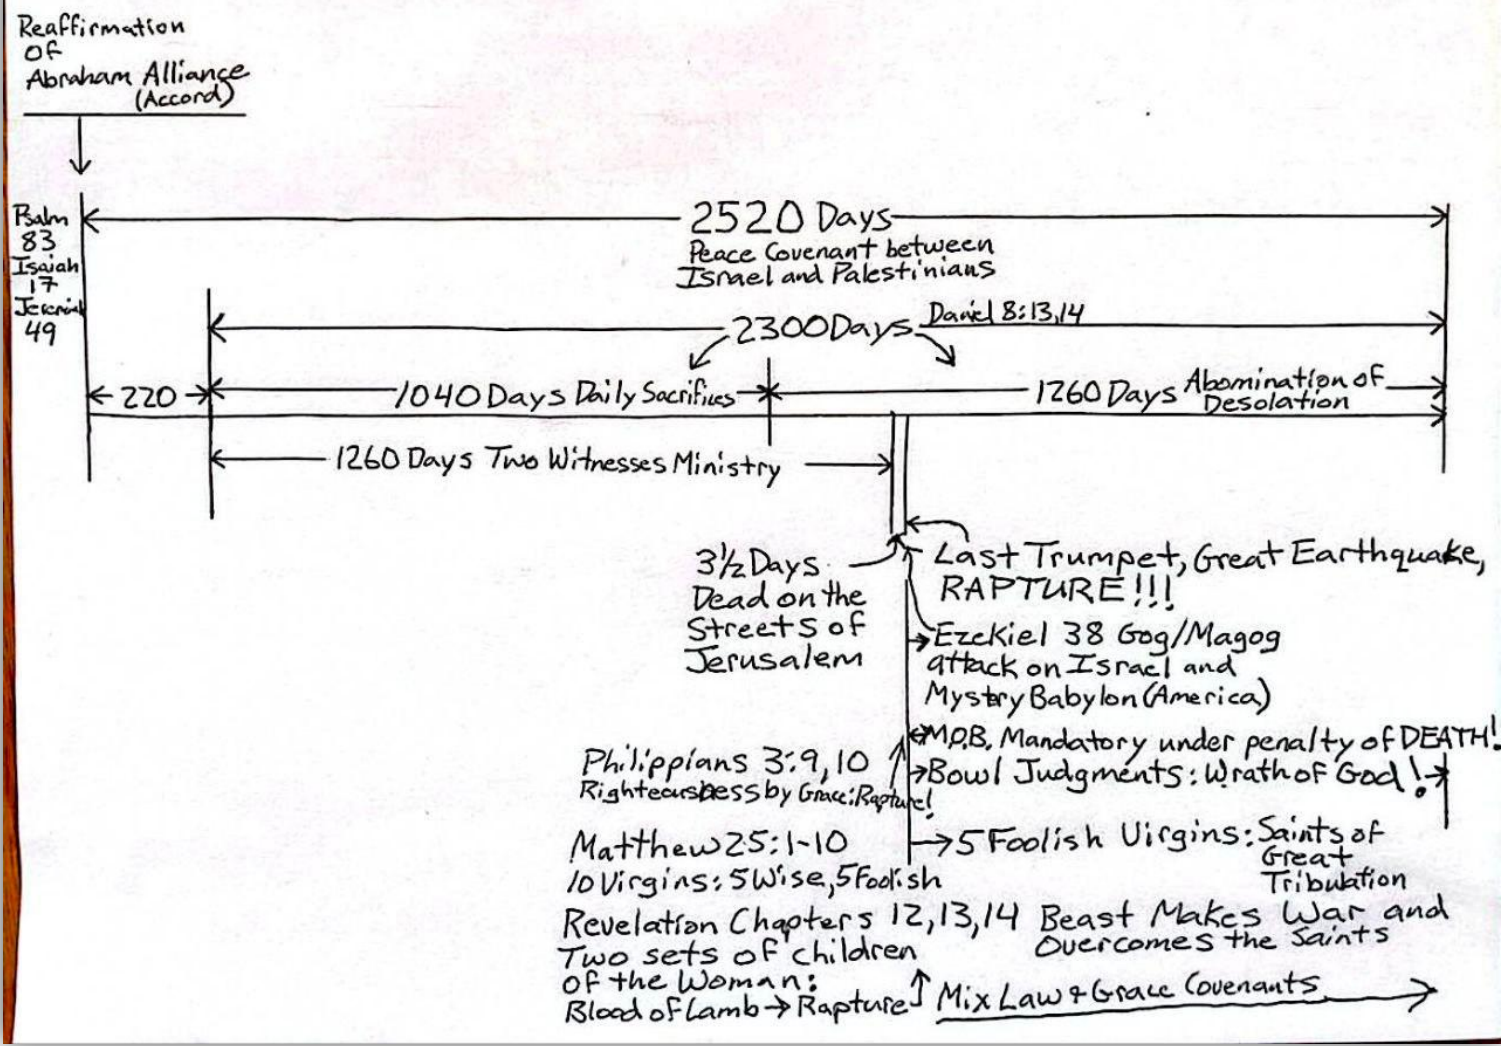 Reaffirmation
OF
Abraham Alliance
(Accord)
Psalm
83
Isaiah
17
Jeremiah
49
2520 Days
Peace Covenant between
Israel and Palestinians
2300 Days Daniel 8:13,14
220
1040 Days Daily Sacrifices
1260 Days Abomination of
Desolation
1260 Days Two Witnesses Ministry
3½ Days
Dead on the
Streets of
Jerusalem
Last Trumpet, Great Earthquake,
RAPTURE!!!
Ezekiel 38 Gog/Magog
attack on Israel and
Mystry Babylon (America)
M.O.B. Mandatory under penalty of DEATH!
Bowl Judgments: Wrath of God!
Philippians 3:9,10
Righteousness by Grace: Rapture!
Matthew 25:1-10
10 Virgins: 5 Wise, 5 Foolish
5 Foolish Virgins: Saints of
Great
Tribulation
Revelation Chapters 12, 13, 14 Beast Makes War and
Overcomes the Saints
Two sets of children
of the Woman:
Blood of Lamb → Rapture
Mix Law & Grace Covenants